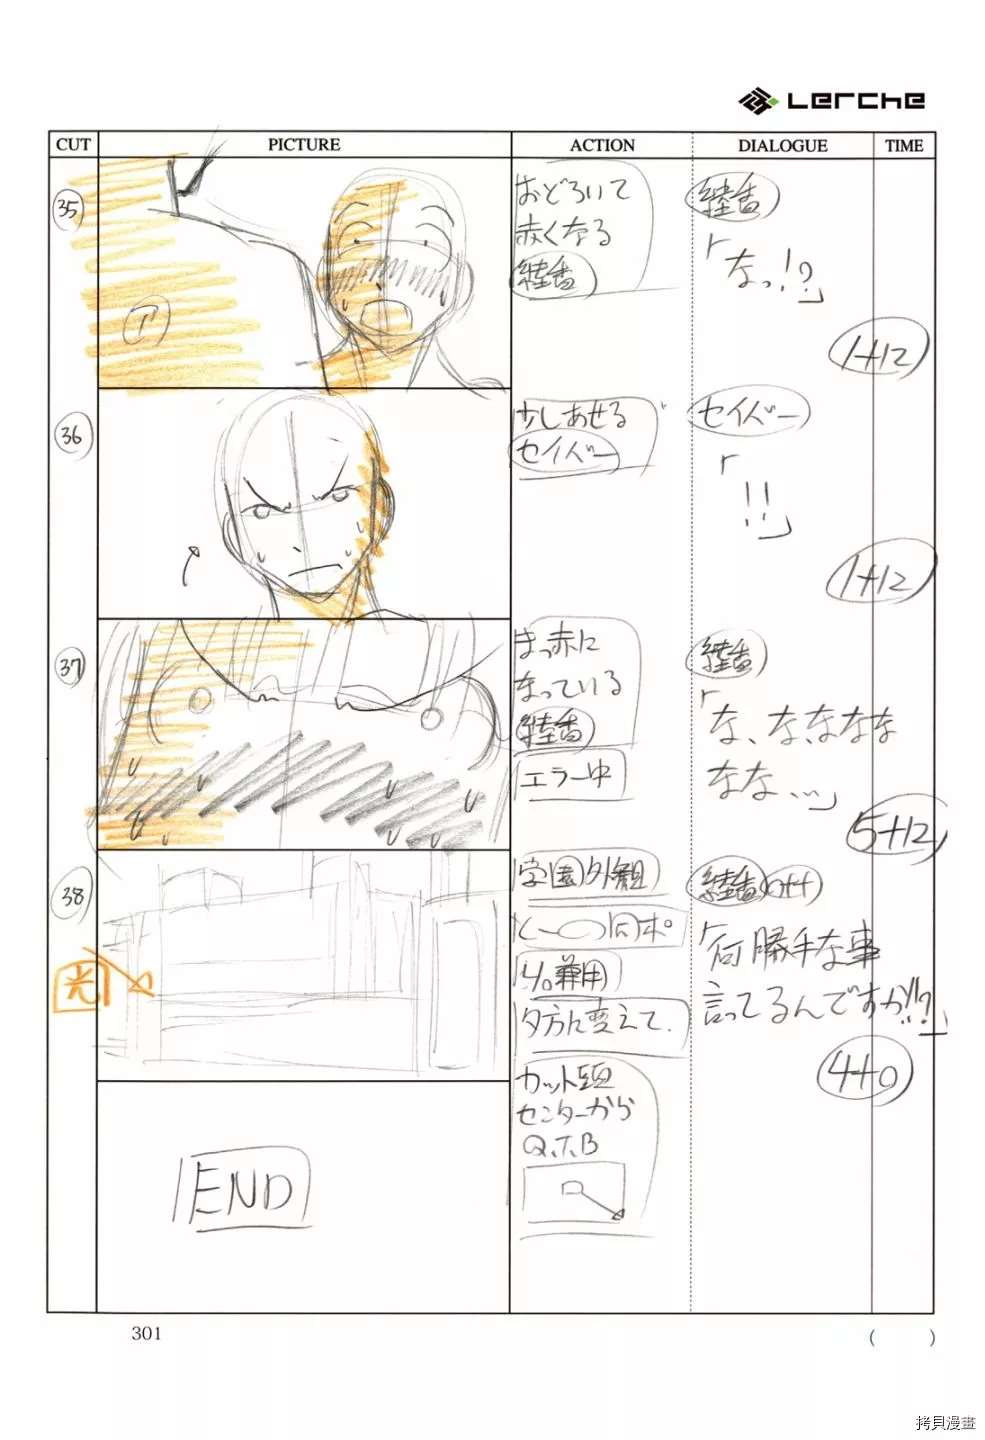 Lerche
CUT PICTURE ACTION DIALOGUE TIME
35
T
おどろいて
赤くなる
綾香
綾香
「なっ!?」
1+12
36
少しあせる
セイバー
セイバー
「!!」
1+12
37
まっ赤に
なっている
綾香
エラー中
綾香
「な、な、ななな
なな…」
5+12
38
光
学園外観
同ポ
兼用
夕方に変えて.
カット頭
センターから
Q.T.B
綾香 off
「何勝手な事
言ってるんですか!!?」
4+0
END
301
( )
拷貝漫畫